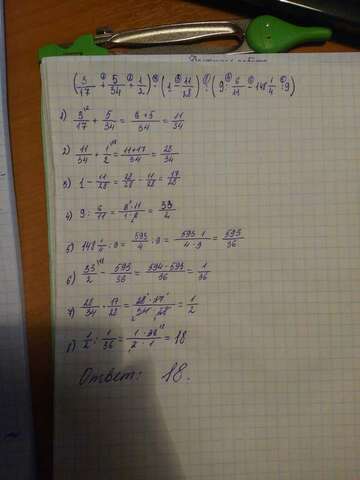 (3/17 + 5/34 + 1/2) · (1 - 11/28) : (9 : 6/11 - 148 1/4 : 9)
1) 3/17 + 5/34 = 6+5/34 = 11/34
2) 11/34 + 1/2 = 11+17/34 = 28/34
3) 1 - 11/28 = 28/28 - 11/28 = 17/28
4) 9 : 6/11 = 9·11/1·2 = 33/2
5) 148 1/4 : 9 = 593/4 : 9 = 593·1/4·9 = 593/36
6) 33/2 - 593/36 = 594-593/36 = 1/36
7) 28/34 · 17/28 = 28·17/34·28 = 1/2
8) 1/2 : 1/36 = 1·36/2·1 = 18
Ответ: 18.